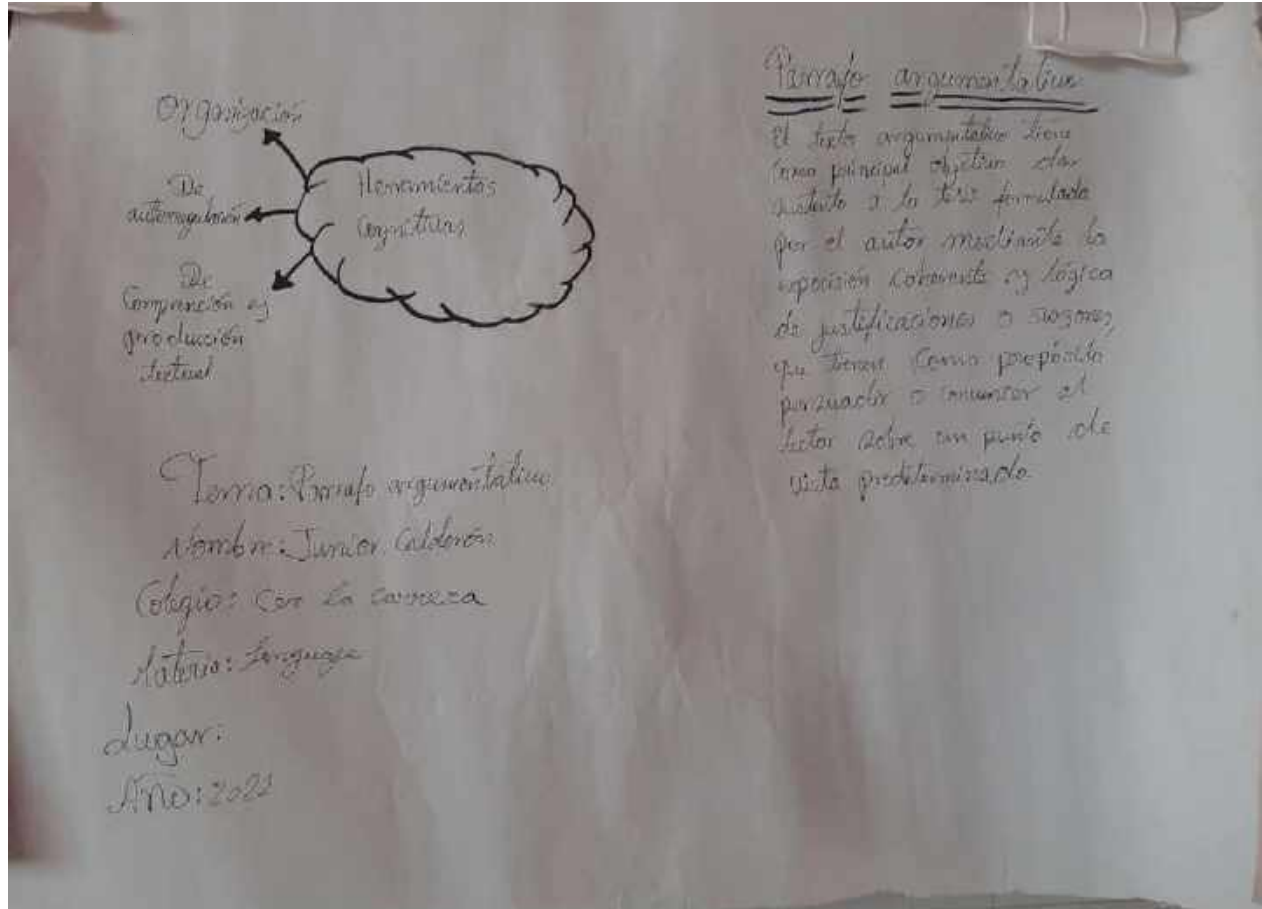 Organización
De
autorregulación
De
Comprención y
producción
textual
Herramientas
Cognitivas
Tema: Párrafo argumentativo
Nombre: Junior Calderón
Colegio: Con la
Materia: Lenguaje
Lugar:
Año:
Párrafo argumentativo
El texto argumentativo tiene
como principal objetivo dar
sustento a la tesis formulada
por el autor mediante la
exposición coherente y lógica
de justificaciones o razones,
que tienen como propósito
persuadir o convencer al
lector sobre un punto de
vista predeterminado.